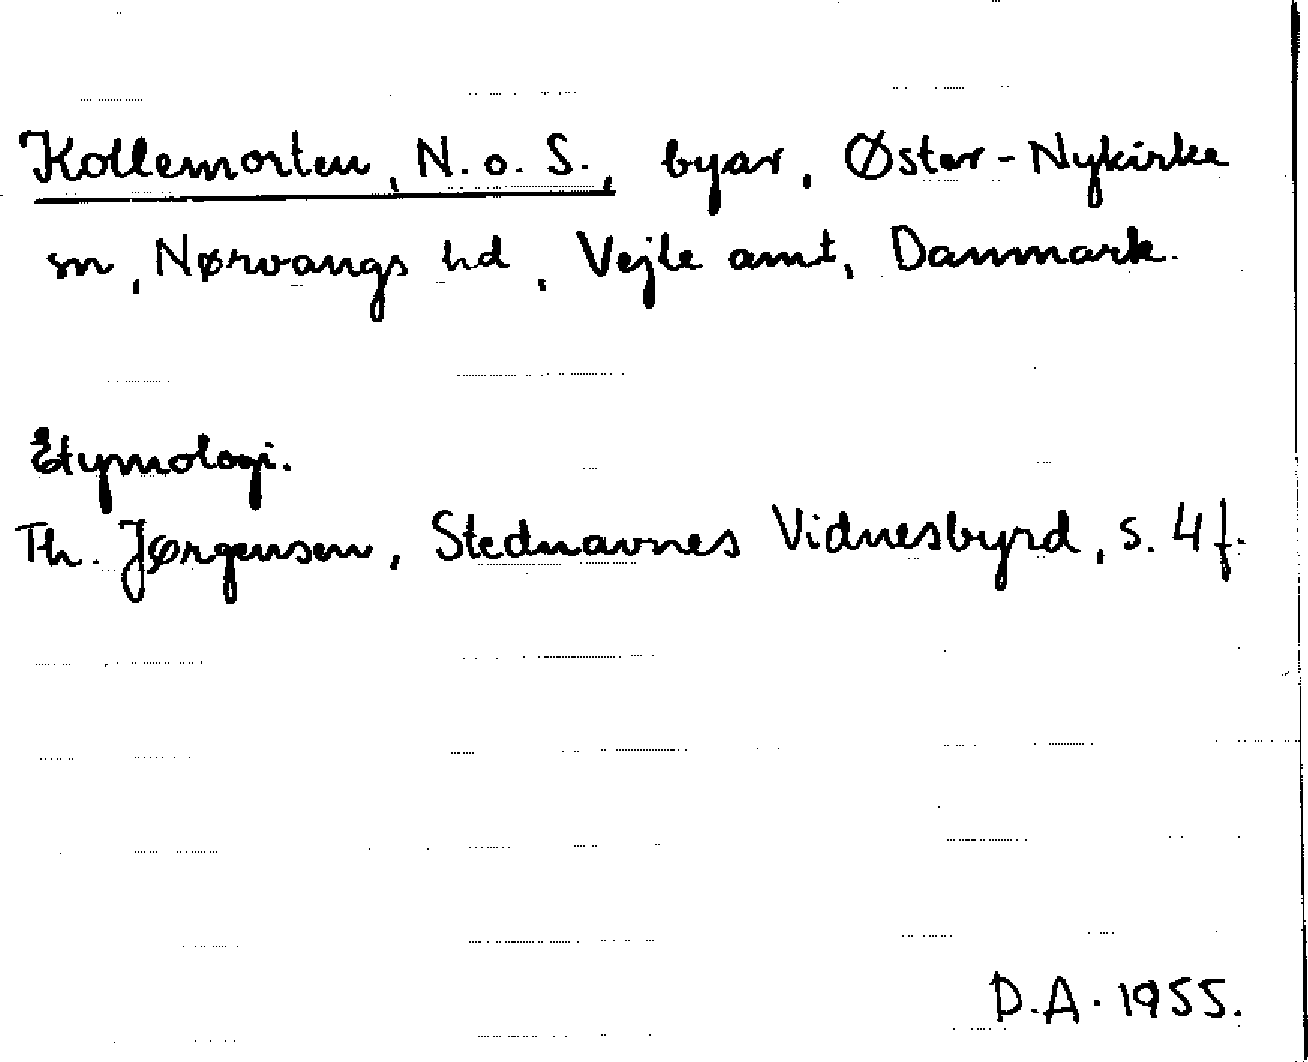 Kollemorten, N. o. S., byar, Øster-Nykirke
sn, Nørvangs hd, Vejle amt, Danmark.
Etymologi.
Th. Jørgensen, Stednavnes Vidnesbyrd, s. 4 f.
D.A. 1955.